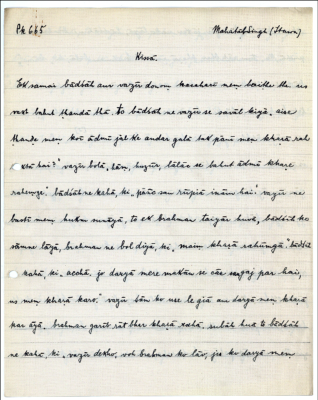 Pk 665 Mahātab Singh (Itawa)
Kissā.
Ek samai bādšāh aur vazīr donoṃ kacaharī meṃ baiṭhe the. us
vaxt bahut ṭhanḍā thā. to bādšāh ne vazīr se savāl kiyā, aise
ṭhanḍe meṃ koī ādmī jal ke andar galā tak pānī meṃ khaṛā rah
saktā hai?" vazīr bolā, hām, huzūr, tālāo se bahut ādmī khaṛe
raheṃge." bādšāh ne kahā, ki, pāṃc sau rūpiā inām hai." vazīr ne
bastī meṃ hukm sunāyā, to ek brahman taiyār huvā, bādšāh ke
sāmne lāyā, brahman ne bol diyā, ki, maiṃ khaṛā rahūṃgā." bādšāh
kahā, ki, acchā, jo daryā mere makān se cār sau gaj par hai,
us meṃ khaṛā karo." vazīr śām ko use le giā aur daryā meṃ khaṛā
kar āyā. brahman garīb rāt bhar khaṛā rahā, subah huā to bādšāh
ne kahā, ki, vazīr dekho, voh brahman ko lāo, jis ko daryā meṃ